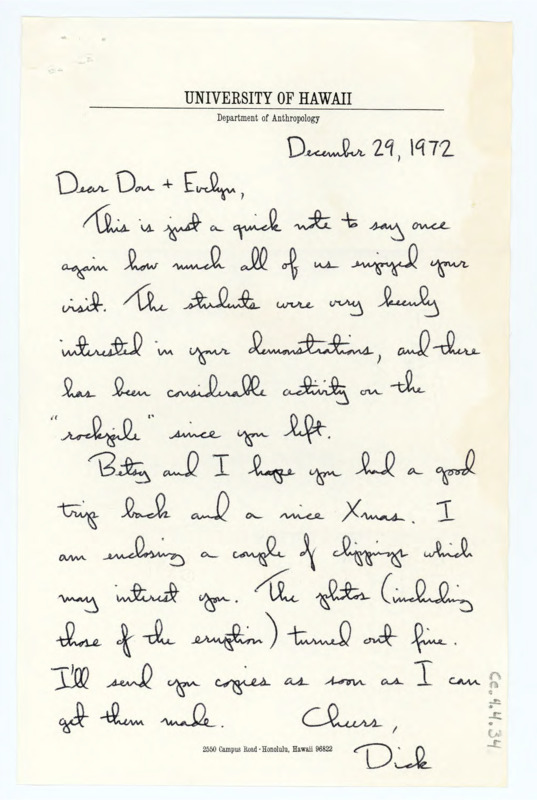 UNIVERSITY OF HAWAII
Department of Anthropology
December 29, 1972
Dear Don + Evelyn,
This is just a quick note to say once
again how much all of us enjoyed your
visit. The students were very keenly
interested in your demonstrations, and there
has been considerable activity on the
"rockpile" since you left.
Betsy and I hope you had a good
trip back and a nice Xmas. I
am enclosing a couple of clippings which
may interest you. The photos (including
those of the eruption) turned out fine.
I'll send you copies as soon as I can
get them made. Cheers,
Dick
2550 Campus Road · Honolulu, Hawaii 96822
Ce.4.4.34